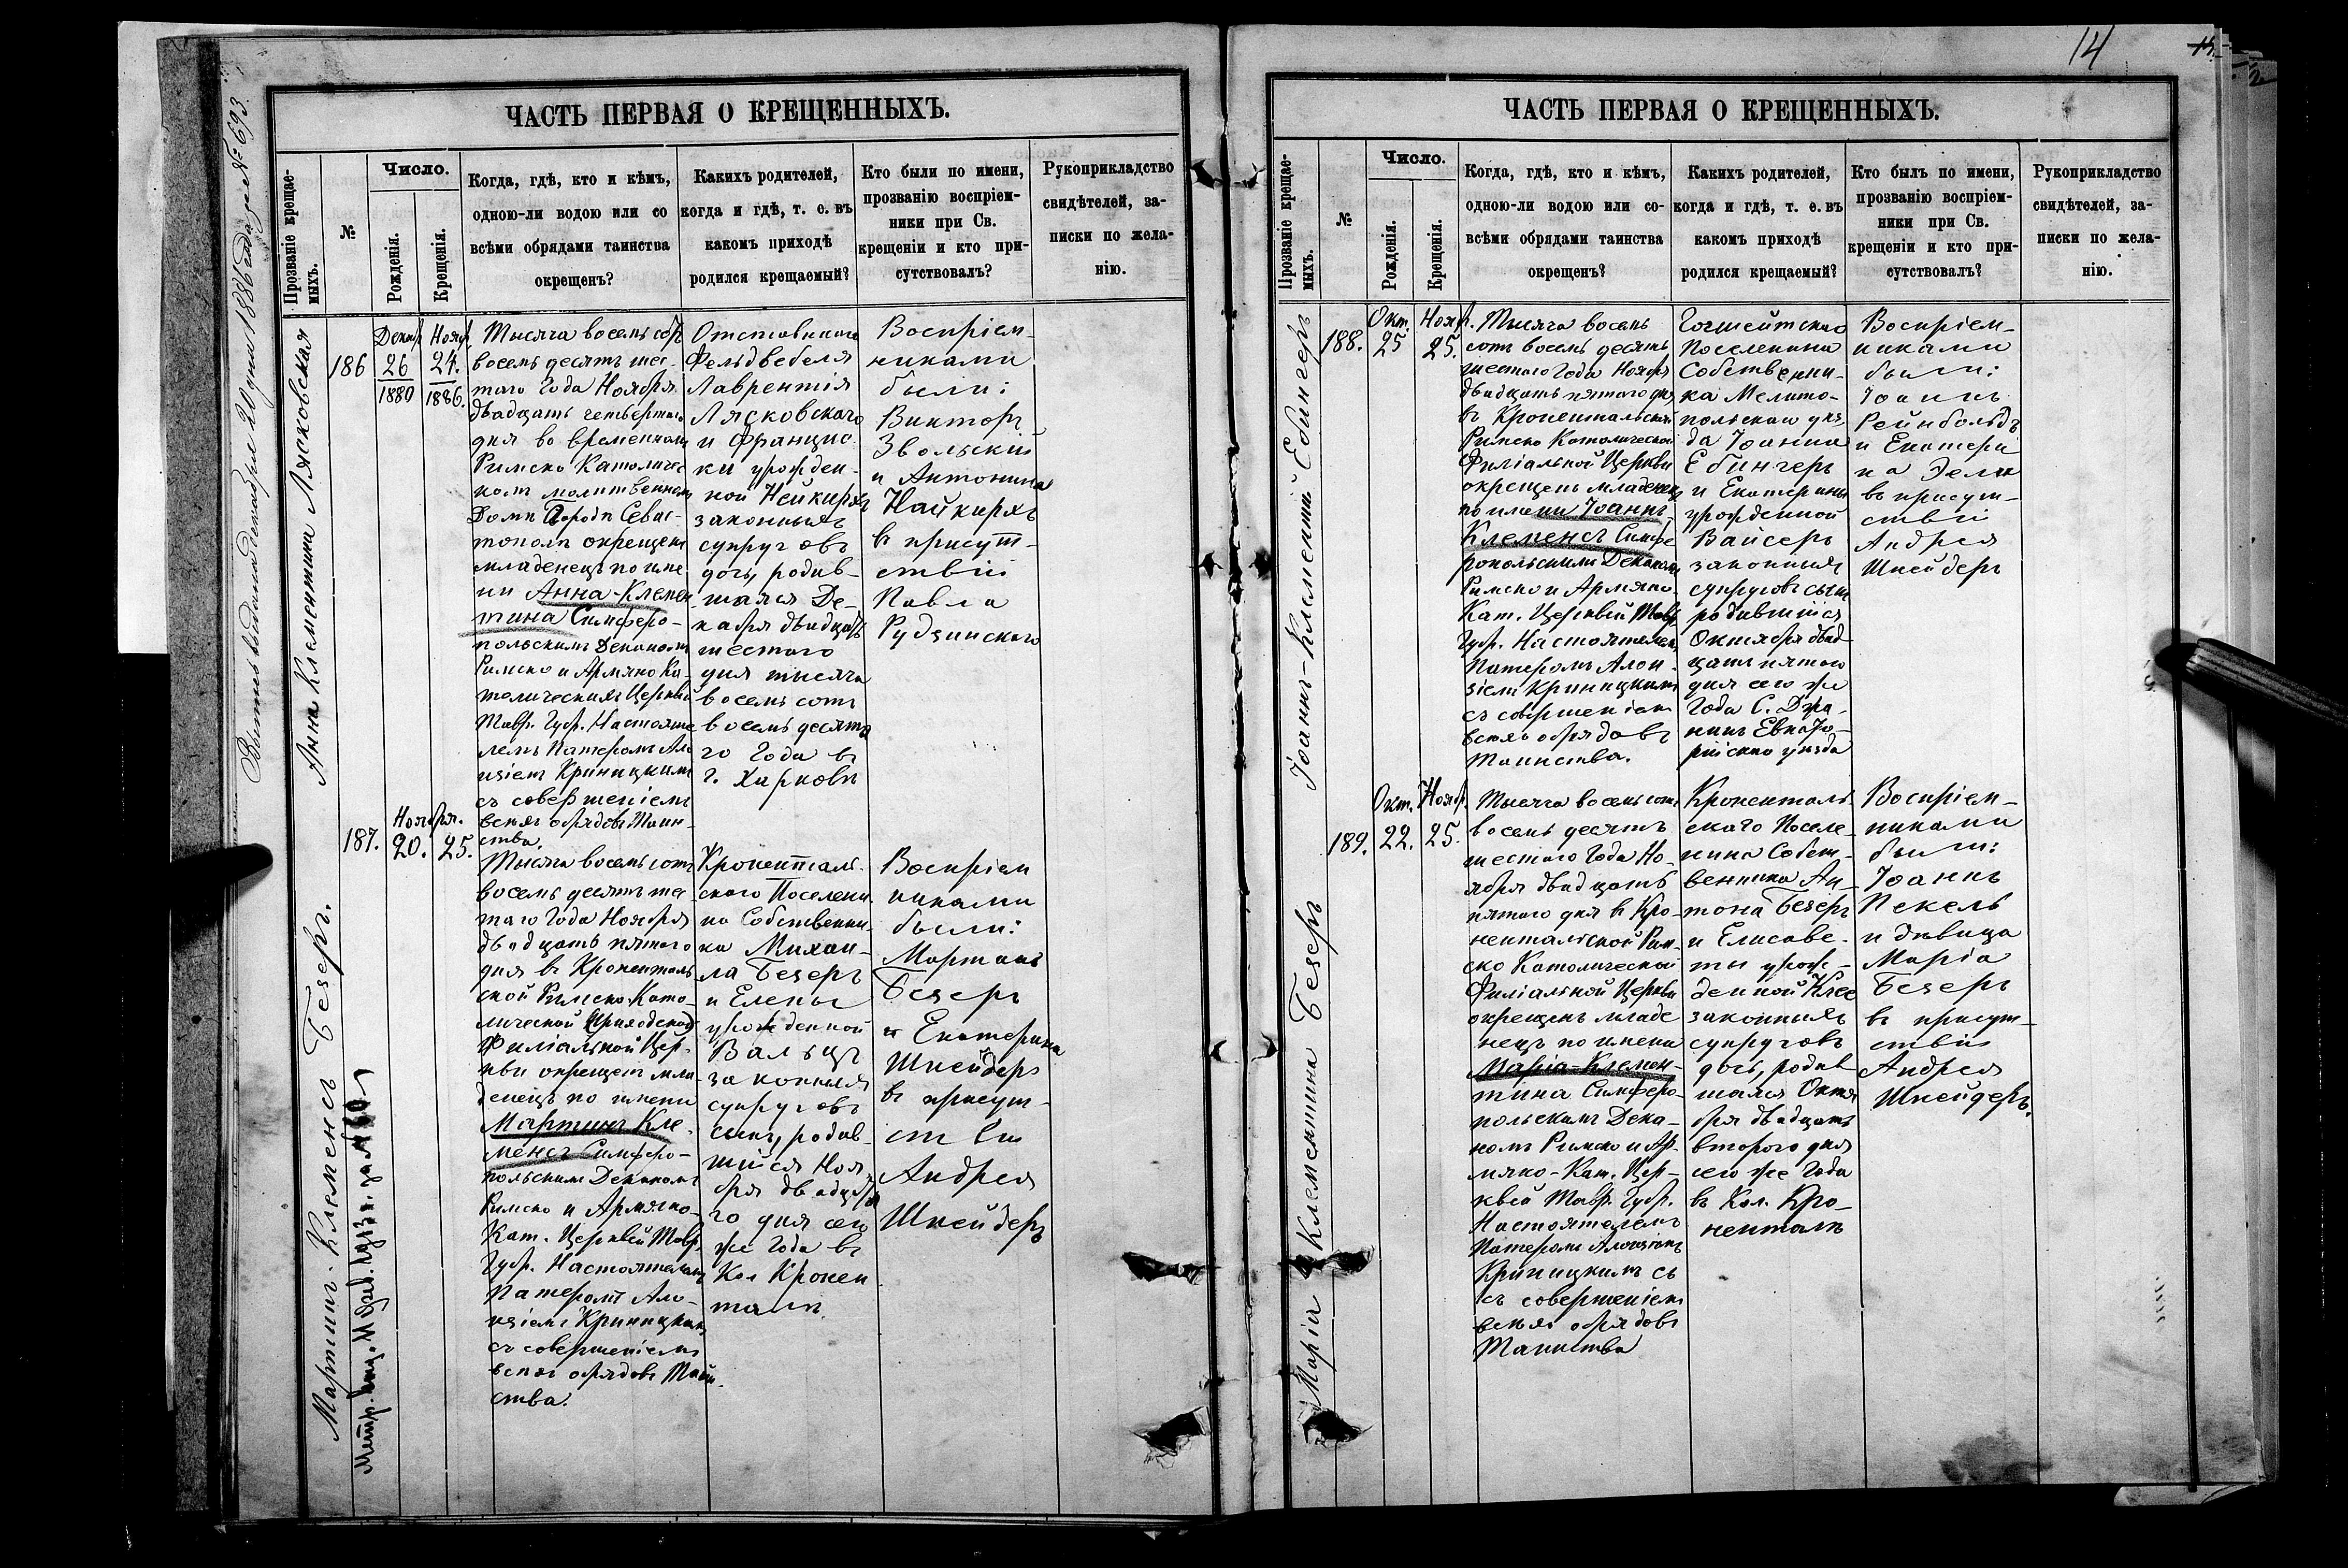 14
ЧАСТЬ ПЕРВАЯ О КРЕЩЕННЫХЪ.
Прозваніе крещае-
мыхъ.
№
Число.
Рожденія.
Крещенія.
Когда, гдѣ, кто и кѣмъ,
одною-ли водою или со
всѣми обрядами таинства
окрещенъ?
Какихъ родителей,
когда и гдѣ, т. е. въ
какомъ приходѣ
родился крещаемый?
Кто были по имени,
прозванію воспріем-
ники при Св.
крещеніи и кто при-
сутствовалъ?
Рукоприкладство
свидѣтелей, за-
писки по жела-
нію.
Анна Клементина Лясковская
186
26
1880
Нояб.
24.
1886.
Тысяча восемь сот
восемь десятъ шес-
таго Года Ноября
двадцать четвертаго
дня во временномъ
Римско Католичес
комъ молитвенномъ
Домѣ Города Севас-
тополѣ окрещенъ
младенецъ по име
ни Анна-Клемен
тина Симферо-
польскимъ Деканомъ
Римско и Армяно Ка-
толическихъ Церквей
Тавр. Губ. Настояте
лемъ Патеромъ Ало
изіемъ Криницкимъ
съ совершеніемъ
всѣхъ обрядовъ Таин-
ства.
Отставного
Фельдвебеля
Лаврентія
Лясковского
и Францис
ки урожден-
ной Нейкирхъ
законныхъ
супруговъ
дочь, родив-
шаяся Де-
кабря двадцать
шестого
дня тысяча
восемь сотъ
восемь десята
го Года въ
г. Харковѣ
Воспріем-
никами
были:
Викторъ
Звольскій
и Антонина
Найкирхъ
въ присут-
ствіи
Павла
Рудзинского
Мартинъ-Клеменсъ Бечеръ.
187.
Ноября.
20.
25.
Тысяча восемь сотъ
восемь десятъ шес
таго Года Ноября
двадцать пятаго
дня въ Кроненталь
ской Римско Като-
лической (Приходской)
Филіальной Цер-
кви окрещенъ мла
денецъ по имени
Мартинъ Кле-
менсъ Симферо-
польскимъ Деканомъ
Римско и Армяно-
Кат. Церквей Тавр.
Губ. Настоятелемъ
Патеромъ Ало-
изіемъ Криницкимъ
съ совершеніемъ
всѣхъ обрядовъ Таин-
ства.
Кроненталь-
ского Поселени
на Собственни-
ка Михаи-
ла Бечеръ
и Елены
урожденной
Вальцъ
законныхъ
супруговъ
сынъ, родив-
шійся Ноя
бря двадцата
го дня сего
же Года въ
Кол Кронен
талѣ
Воспріем
никами
были:
Мартинъ
Бечеръ
и Екатерина
Шнейдеръ
въ присут-
ствіи
Андрея
Шнейдеръ
ЧАСТЬ ПЕРВАЯ О КРЕЩЕННЫХЪ.
Прозваніе крещае-
мыхъ.
№
Число.
Рожденія.
Крещенія.
Когда, гдѣ, кто и кѣмъ,
одною-ли водою или со-
всѣми обрядами таинства
окрещенъ?
Какихъ родителей,
когда и гдѣ, т. е. въ
какомъ приходѣ
родился крещаемый?
Кто былъ по имени,
прозванію воспріем-
ники при Св.
крещеніи и кто при-
сутствовалъ?
Рукоприкладство
свидѣтелей, за-
писки по жела-
нію.
Іоаннъ-Клементій Ебингеръ
188.
Окт.
25
Нояб.
25.
Тысяча восемь
сотъ восемь десятъ
шестого Года Ноября
двадцать пятого дня
въ Кронентальской
Римско Католической
Филіальной Церкви
окрещенъ младенецъ
по имени Іоаннъ
Клеменсъ Симфе
ропольскимъ Деканомъ
Римско и Армяно
Кат. Церквей Тавр.
Губ. Настоятелемъ
Патеромъ Алои-
зіемъ Криницкимъ
съ совершеніемъ
всѣхъ обрядовъ
Таинства.
Поселенина
Собственни-
ка Мелито-
польскаго уѣз
да Іоанна
Ебингеръ
и Екатерины
урожденной
Вайсеръ
законныхъ
супруговъ сынъ
родившійся
Октября двад-
цать пятого
дня сего же
Года С.
Евпато-
рійскаго уѣзда
Воспріем-
никами
были:
Іоаннъ
Рейнбольдъ
и Екатери
на
въ присут-
ствіи
Андрея
Шнейдеръ
Марія Клементина Бечеръ
189.
Окт.
22.
Нояб.
25.
Тысяча восемь сотъ
восемь десятъ
шестого Года Но-
ября двадцать
пятого дня въ Кро-
нентальской Рим-
ско Католической
Филіальной Церкви
окрещенъ младе
нецъ по имени
Марія-Клемен-
тина Симферо-
польскимъ Дека-
номъ Римско и Ар-
мяно-Кат. Цер-
квей Тавр. Губр.
Настоятелемъ
Патеромъ Алоизіемъ
Криницкимъ съ
съ совершеніемъ
всѣхъ обрядовъ
Таинства
Кроненталь-
ского Поселе-
нина Собст-
венника Ан-
тона Бечеръ
и Елисаве-
ты урож-
денной Клее
законныхъ
супруговъ
дочь, родив
шаяся Октя
бря двадцать
второго дня
сего же Года
въ Кол. Кро-
ненталѣ
Воспріем-
никами
были:
Іоаннъ
Пекель
и дѣвица
Марія
Бечеръ
въ присут-
ствіи
Андрея
Шнейдеръ.